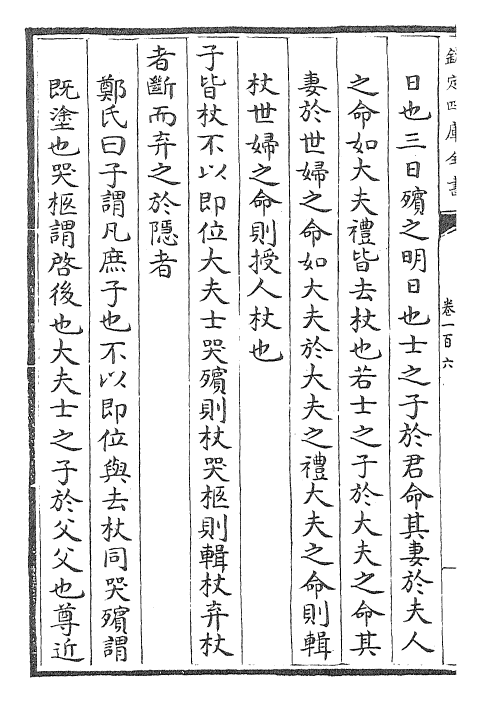 欽定四庫全書
卷一百六
日也三日殯之明日也士之子於君命其妻於夫人
之命如大夫禮皆去杖也若士之子於大夫之命其
妻於世婦之命如大夫於大夫之禮大夫之命則輯
杖世婦之命則授人杖也
子皆杖不以即位大夫士哭殯則杖哭柩則輯杖弃杖
者斷而弃之於隱者
鄭氏曰子謂凡庶子也不以即位與去杖同哭殯謂
既塗也哭柩謂啓後也大夫士之子於父父也尊近